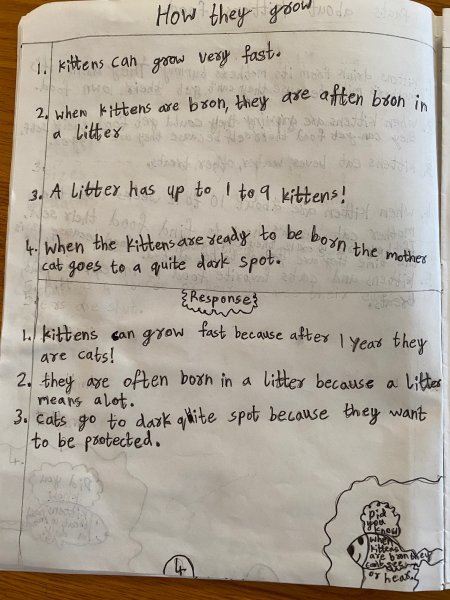 How they grow
1. kittens can grow very fast.
2. when kittens are bron, they are aften bron in
a litter
3. A litter has up to 1 to 9 kittens!
4. when the kittens are ready to be born the mother
cat goes to a quite dark spot.
Response
1. kittens can grow fast because after 1 year they
are cats!
2. they are often born in a litter because a litter
means alot.
3. cats go to dark quite spot because they want
to be protected.
Did
you
know
when
kittens
are bron they
cant see
or hear.
4